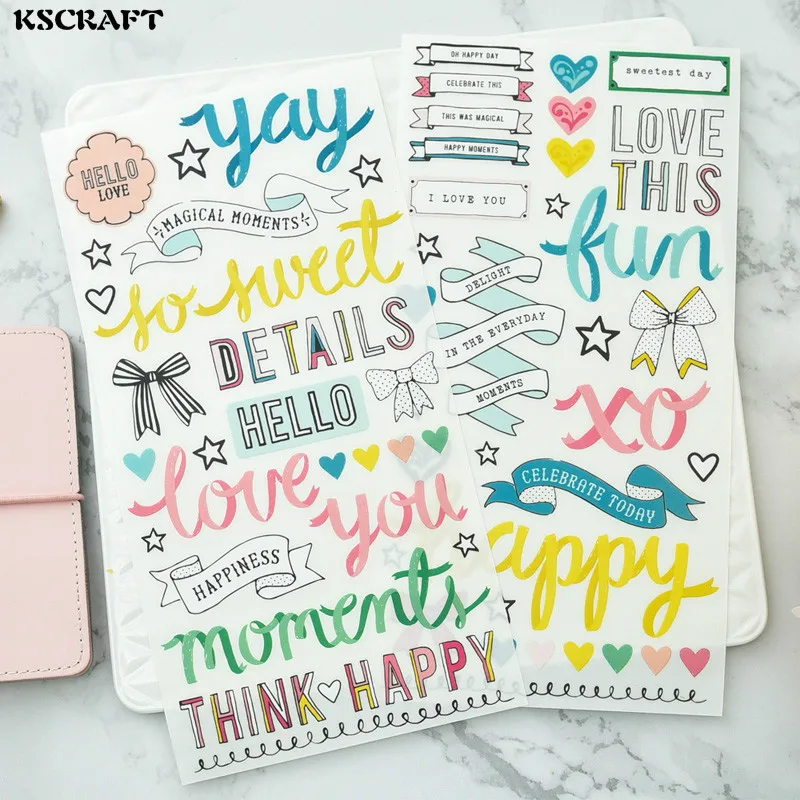 KSCRAFT
yay
HELLO
LOVE
MAGICAL MOMENTS
so sweet
DETAILS
HELLO
love
you
HAPPINESS
moments
THINK HAPPY
OH HAPPY DAY
CELEBRATE THIS
THIS WAS MAGICAL
HAPPY MOMENTS
I LOVE YOU
sweetest day
LOVE
THIS
fun
DELIGHT
IN THE EVERYDAY
MOMENTS
xo
CELEBRATE TODAY
happy